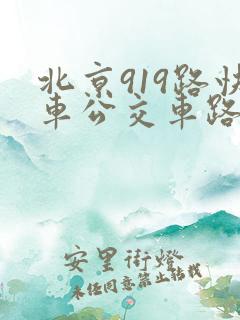 北京919路快
車公交車路
安里街燈
未經同意禁止轉載